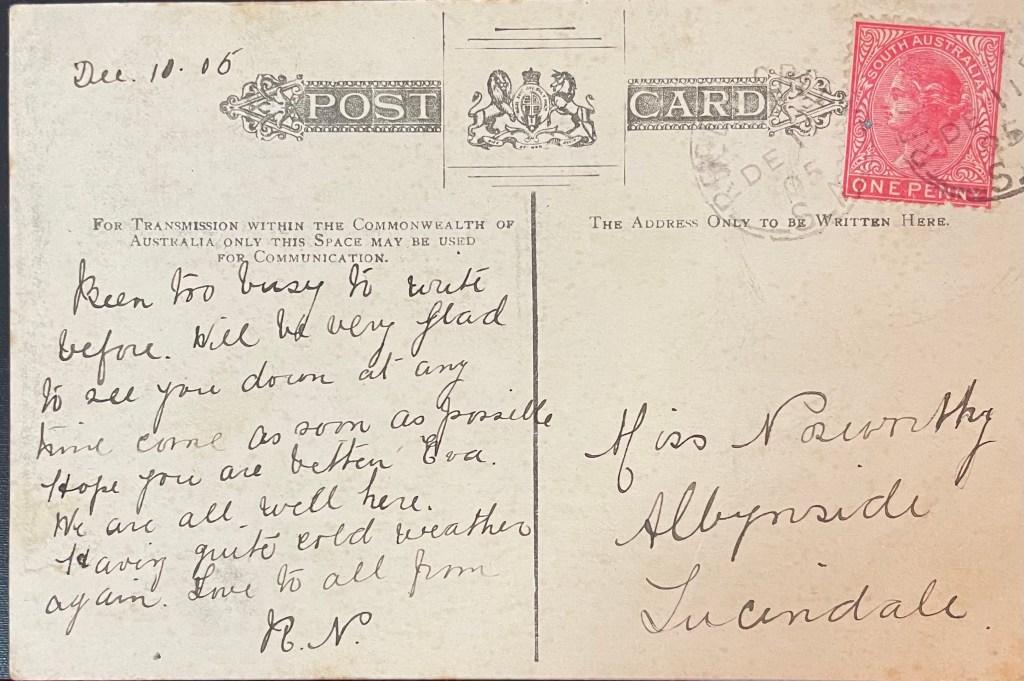 Dec. 10. 05
POST CARD
SOUTH AUSTRALIA
ONE PENNY
DE 11
05
S.A
FOR TRANSMISSION WITHIN THE COMMONWEALTH OF
AUSTRALIA ONLY THIS SPACE MAY BE USED
FOR COMMUNICATION.
THE ADDRESS ONLY TO BE WRITTEN HERE.
Been too busy to write
before. Will be very glad
to see you down at any
time come as soon as possible
Hope you are better Eva.
We are all well here.
Having quite cold weather
again. Love to all from
R. N.
Miss Nosworthy
Albynside
Lucindale.